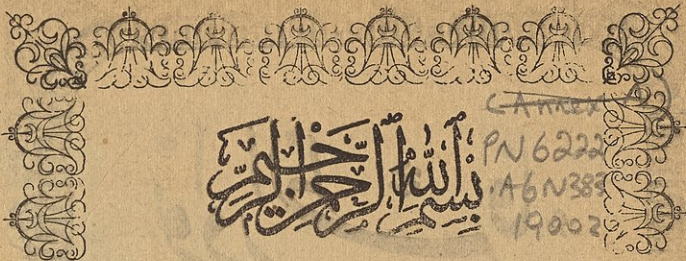 بِسْمِ ٱللهِ ٱلرَّحْمٰنِ ٱلرَّحِيمِ
CAnnex
PN6222
.A6N383
1900z